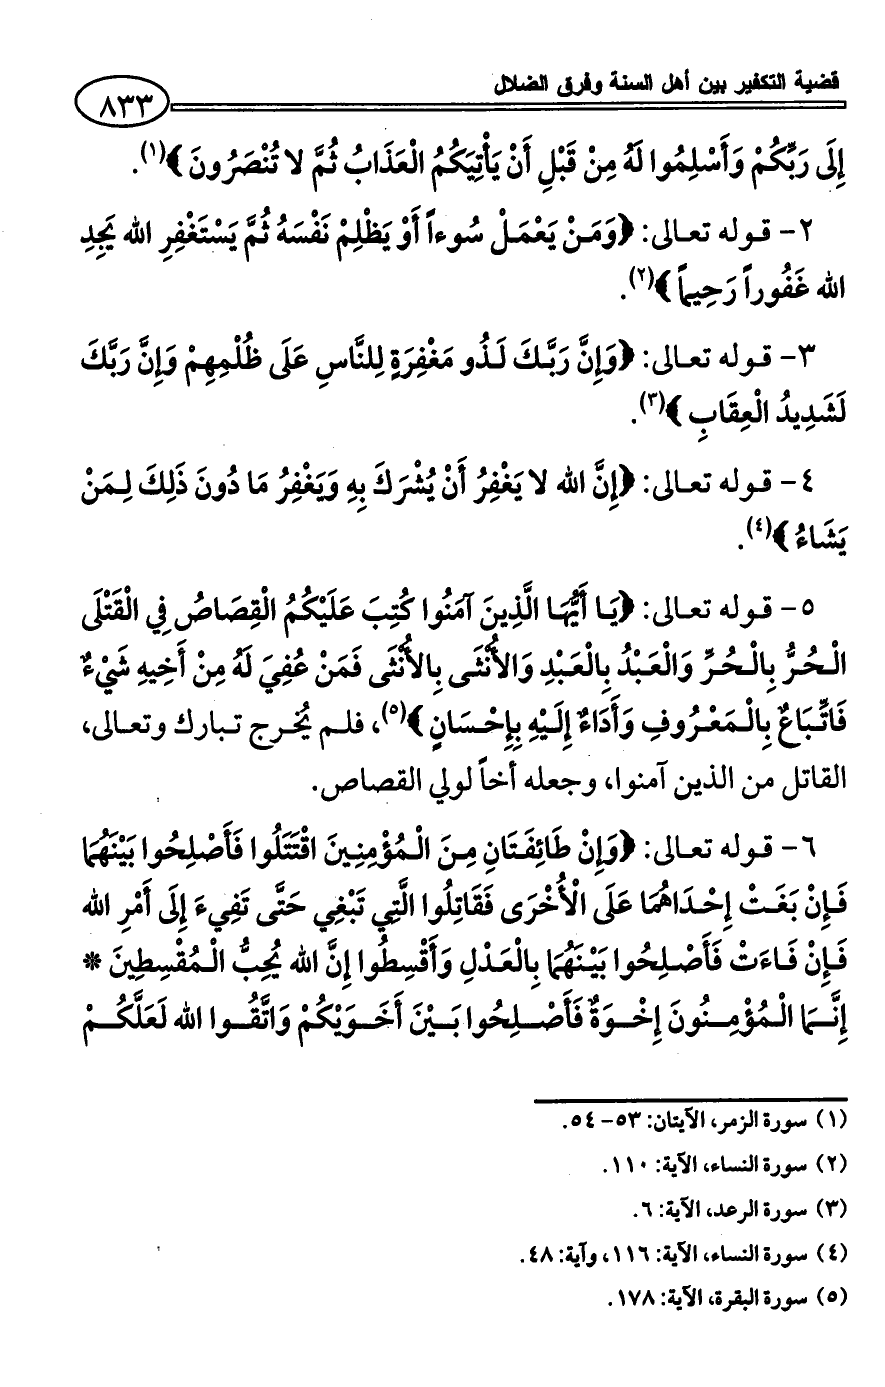 قضية التكفير بين أهل السنة وفرق الضلال
٨٣٣
إِلَى رَبِّكُمْ وَأَسْلِمُوا لَهُ مِنْ قَبْلِ أَنْ يَأْتِيَكُمُ الْعَذَابُ ثُمَّ لا تُنْصَرُونَ ﴾(١).
٢- قوله تعالى: ﴿وَمَنْ يَعْمَلْ سُوءاً أَوْ يَظْلِمْ نَفْسَهُ ثُمَّ يَسْتَغْفِرِ الله يَجِدِ
الله غَفُوراً رَحِيماً ﴾(٢).
٣- قوله تعالى: ﴿وَإِنَّ رَبَّكَ لَذُو مَغْفِرَةٍ لِلنَّاسِ عَلَى ظُلْمِهِمْ وَإِنَّ رَبَّكَ
لَشَدِيدُ الْعِقَابِ ﴾(٣).
٤- قوله تعالى: ﴿إِنَّ الله لا يَغْفِرُ أَنْ يُشْرَكَ بِهِ وَيَغْفِرُ مَا دُونَ ذَلِكَ لِمَنْ
يَشَاءُ ﴾(٤).
٥- قوله تعالى: ﴿يَا أَيُّهَا الَّذِينَ آمَنُوا كُتِبَ عَلَيْكُمُ الْقِصَاصُ فِي الْقَتْلَى
الْحُرُّ بِالْحُرِّ وَالْعَبْدُ بِالْعَبْدِ وَالأُنْثَى بِالأُنْثَى فَمَنْ عُفِيَ لَهُ مِنْ أَخِيهِ شَيْءٌ
فَاتِّبَاعٌ بِالْمَعْرُوفِ وَأَدَاءٌ إِلَيْهِ بِإِحْسَانٍ ﴾(٥)، فلم يُخرج تبارك وتعالى،
القاتل من الذين آمنوا، وجعله أخاً لولي القصاص.
٦- قوله تعالى: ﴿وَإِنْ طَائِفَتَانِ مِنَ الْمُؤْمِنِينَ اقْتَتَلُوا فَأَصْلِحُوا بَيْنَهُمَا
فَإِنْ بَغَتْ إِحْدَاهُمَا عَلَى الْأُخْرَى فَقَاتِلُوا الَّتِي تَبْغِي حَتَّى تَفِيءَ إِلَى أَمْرِ الله
فَإِنْ فَاءَتْ فَأَصْلِحُوا بَيْنَهُمَا بِالْعَدْلِ وَأَقْسِطُوا إِنَّ الله يُحِبُّ الْمُقْسِطِينَ *
إِنَّمَا الْمُؤْمِنُونَ إِخْوَةٌ فَأَصْلِحُوا بَيْنَ أَخَوَيْكُمْ وَاتَّقُوا الله لَعَلَّكُمْ
(١) سورة الزمر، الآيتان: ٥٣-٥٤.
(٢) سورة النساء، الآية: ١١٠.
(٣) سورة الرعد، الآية: ٦.
(٤) سورة النساء، الآية: ١١٦، وآية: ٤٨.
(٥) سورة البقرة، الآية: ١٧٨.